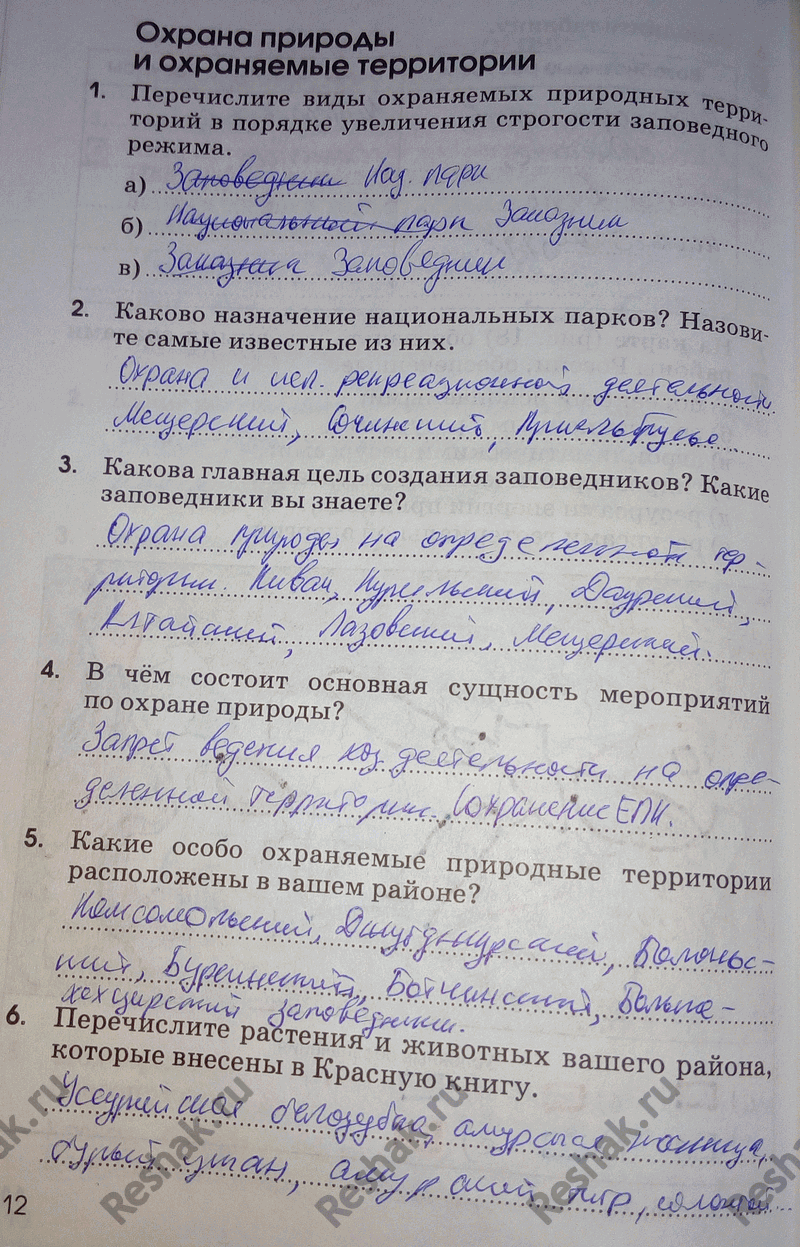 Охрана природы
и охраняемые территории
1. Перечислите виды охраняемых природных терри-
торий в порядке увеличения строгости заповедного
режима.
а) Заповедники Нац. парк
б) Национальный парк Заказник
в) Заказник Заповедник
2. Каково назначение национальных парков? Назови-
те самые известные из них.
Охрана и исп. рекреационной деятельности
Мещерский, Сочинский, Приэльбрусье
3. Какова главная цель создания заповедников? Какие
заповедники вы знаете?
Охрана природы на определенной тер-
ритории. Кивач, Курильский, Даурский,
Алтайский, Лазовский, Мещерский.
4. В чём состоит основная сущность мероприятий
по охране природы?
Запрет ведения хоз деятельности на опре-
деленной территории. Сохранение ЕПК.
5. Какие особо охраняемые природные территории
расположены в вашем районе?
Комсомольский, Джугджурский, Болоньс-
кий, Буреинский, Ботчинский, Больше-
хехцирский заповедники.
6. Перечислите растения и животных вашего района,
которые внесены в Красную книгу.
Уссурийская белозубка, амурская
бурый ушан, амурский тигр, солонгой
12
Reshak.ru
Reshak.ru
Reshak.ru
Reshak.ru
Reshak.ru